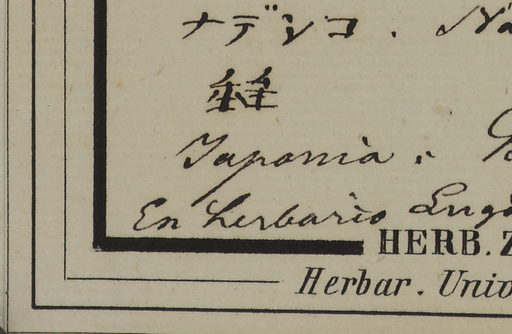 ナデシコ. Na
Japonia.
En herbario Eug
HERB. Z
Herbar. Univ